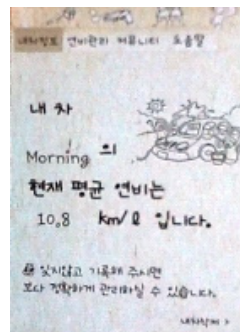 내차정보 연비관리 커뮤니티 도움말
내 차
Morning 의
현재 평균 연비는
10.8 km/ℓ 입니다.
잊지않고 기록해 주시면
보다 정확하게 관리하실 수 있습니다.